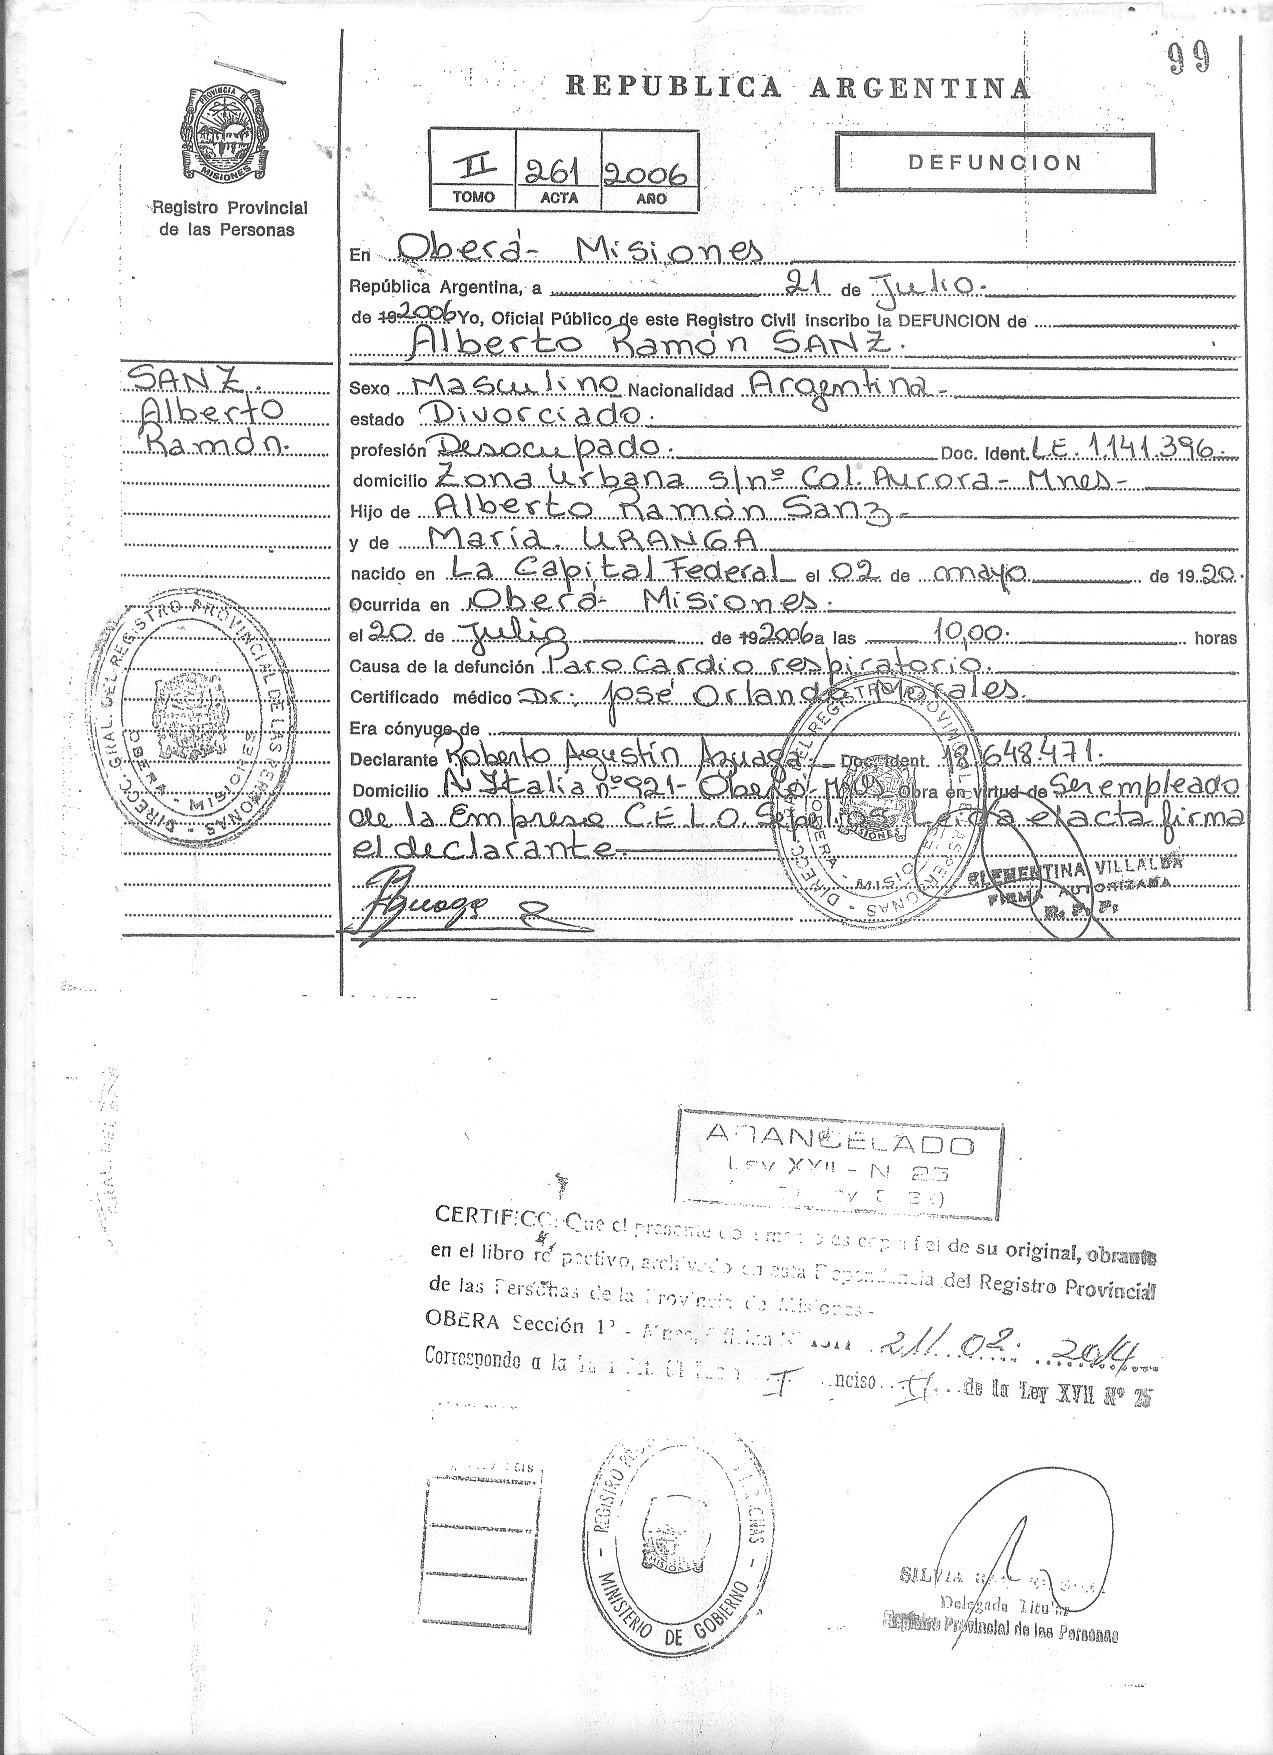 99
REPUBLICA ARGENTINA
PROVINCIA DE
MISIONES
Registro Provincial
de las Personas
II 261 2006
TOMO ACTA AÑO
DEFUNCION
En Oberá - Misiones
República Argentina, a 21 de Julio.
de 19 2006 Yo, Oficial Público de este Registro Civil inscribo la DEFUNCION de
Alberto Ramón SANZ.
SANZ.
Alberto
Ramón.
Sexo Masculino Nacionalidad Argentina-
estado Divorciado.
profesión Desocupado. Doc. Ident. L.E. 1.141.396.
domicilio Zona Urbana s/nº Col. Aurora - Mnes-
Hijo de Alberto Ramón Sanz-
y de María. URANGA
nacido en La Capital Federal el 02 de mayo de 1920.
Ocurrida en Oberá - Misiones.
el 20 de Julio de 19 2006 a las 10,00. horas
Causa de la defunción Paro Cardio respiratorio.
Certificado médico Dr: José Orlando Morales.
Era cónyuge de
Declarante Roberto Agustín Azuaga- Doc. Ident. 18.648.471.
Domicilio N Italia nº 921- Oberá- Mnes Obra en virtud de Ser empleado
de la Empresa C.E.L.O Sepelios. Leída el acta firma
el declarante.
DIRECC. GRAL. DEL REGISTRO PROVINCIAL DE LAS PERSONAS
OBERA - MISIONES
DIRECC. GRAL. DEL REGISTRO PROVINCIAL DE LAS PERSONAS
OBERA - MISIONES
CLEMENTINA VILLALBA
FIRMA AUTORIZADA
R. P. P.
ARANCELADO
Ley XVII - N 25
CERTIFICO: Que el presente es copia fiel de su original, obrante
en el libro respectivo, archivado en esta Dependencia del Registro Provincial
de las Personas de la Provincia de Misiones-
OBERA Sección 1ª - 21/ 02. 2014
Corresponde a la I inciso II de la Ley XVII Nº 25
REGISTRO
MISIONES
MINISTERIO DE GOBIERNO
SILVIA
Delegada Titular
Registro Provincial de las Personas